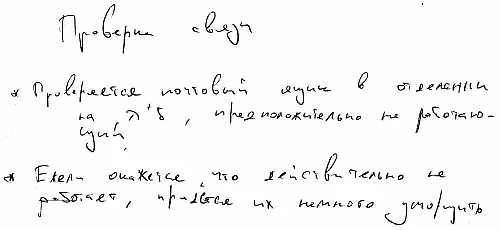 Проверка связи
* Проверяется почтовый ящик в отделении
на , предположительно не работаю-
щий.
* Если окажется, что действительно не
работает, придётся их немного